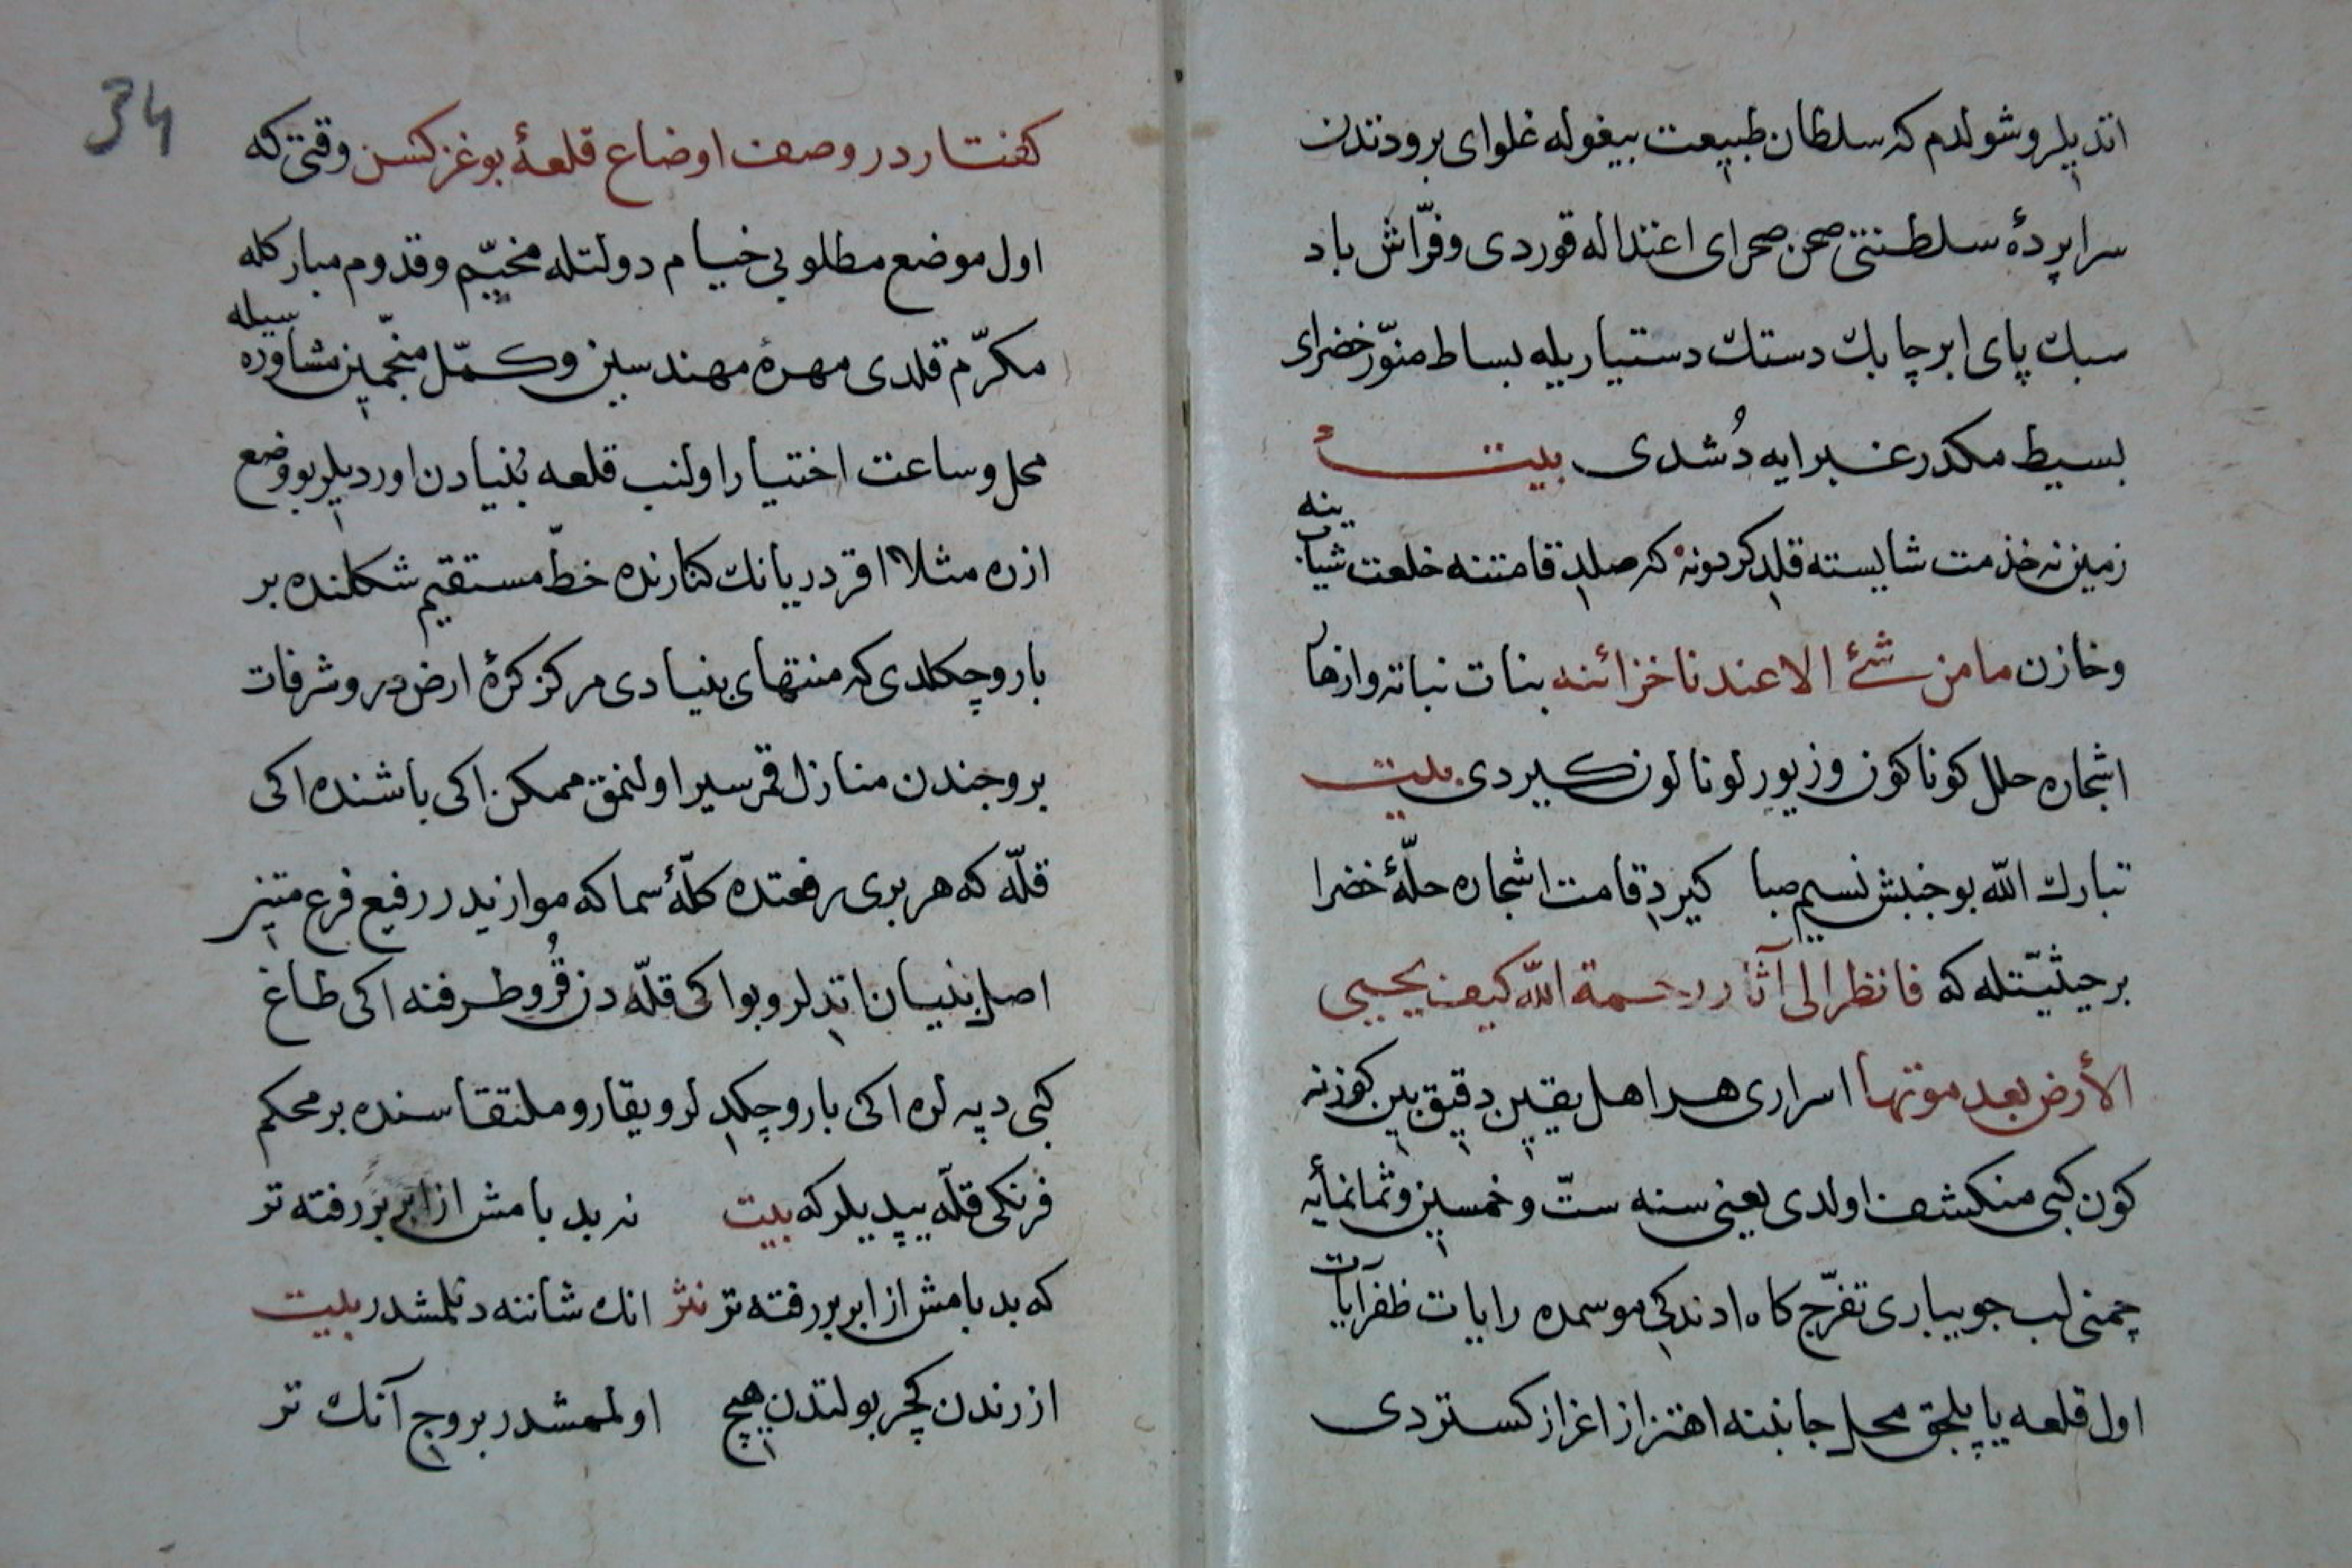 اتدیلر و شولدم که سلطان طبیعت بیغوله غلوای برودتدن
سراپردهٔ سلطنتی صحن صحرای اعتداله قوردی و فرّاش باد
سبك پای ابر چابك دستك دستیاریله بساط منوّر خضرای
بسیط مکدر غبرایه دُشدی بیت
زمین نه خذمت شایسته قلد کردونه که صلد قامتنه خلعت شبابنه
و خازن مامن شئ الا عندنا خزائنه بنات نباته و ازهار
اشجاره حلل کوناکون و زیور لونالون کیردی بیت
تبارك الله بو جنبش نسیم صبا کیرد قامت اشجاره حلّهٔ خضرا
بر حیثیّتله که فانظر الی آثار رحمة الله کیف یحیی
الأرض بعد موتها اسراری هر اهل یقین دقیق بین کوزنه
کون کبی منکشف اولدی یعنی سنه ستّ و خمسین و ثمانمأیه
چمنی لب جویباری تفرّج کاه ادندکی موسمده رایات ظفر آیات
اول قلعه یاپیلجق محل جانبنه اهتزاز اغراز کستردی
34
کفتار در وصف اوضاع قلعهٔ بوغزکسن وقتی که
اول موضع مطلوبی خیام دولتله مخیّم و قدوم مبارکله
مکرّم قلدی مهرهٔ مهندسین و کمّل منجّمین مشاوره سیله
محل و ساعت اختیار اولنب قلعه بُنیادن اوردیلر بو وضع
ازره مثلا اقر دریانك کنارنده خطّ مستقیم شکلنده بر
بارو چکلدی که منتهای بنیادی مرکز کرهٔ ارض در و شرفات
بروجندن منازل قمر سیر اولنمق ممکن اکی باشنده اکی
قلّه که هر بری رفعتده کلّهٔ سماکه موازیدر رفیع فرع متین
اصل بنیان اتدلر و بو اکی قلّه دن قُرو طرفنه اکی طاغ
کبی دپه لره اکی بارو چکد لر و یقارو ملتقاسنده بر محکم
فرنکی قلّه یپدیلر که بیت نه بد بامش از ابر بر رفته تر
که بد بامش از ابر بر رفته تر نثر انك شاننه دنلمشدر بیت
ازرندن کچر بولتدن هیچ اولممشدر بروج آنك تر